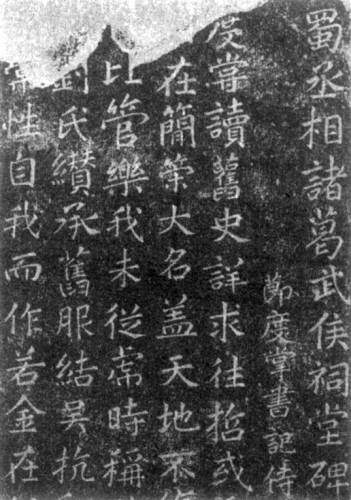 蜀丞相諸葛武侯祠堂碑
節度掌書記侍
度嘗讀舊史詳求往哲或
在簡策大名盖天地不
比管樂我未從虎時稱
劉氏纘承舊服結吳抗
性自我而作若金在